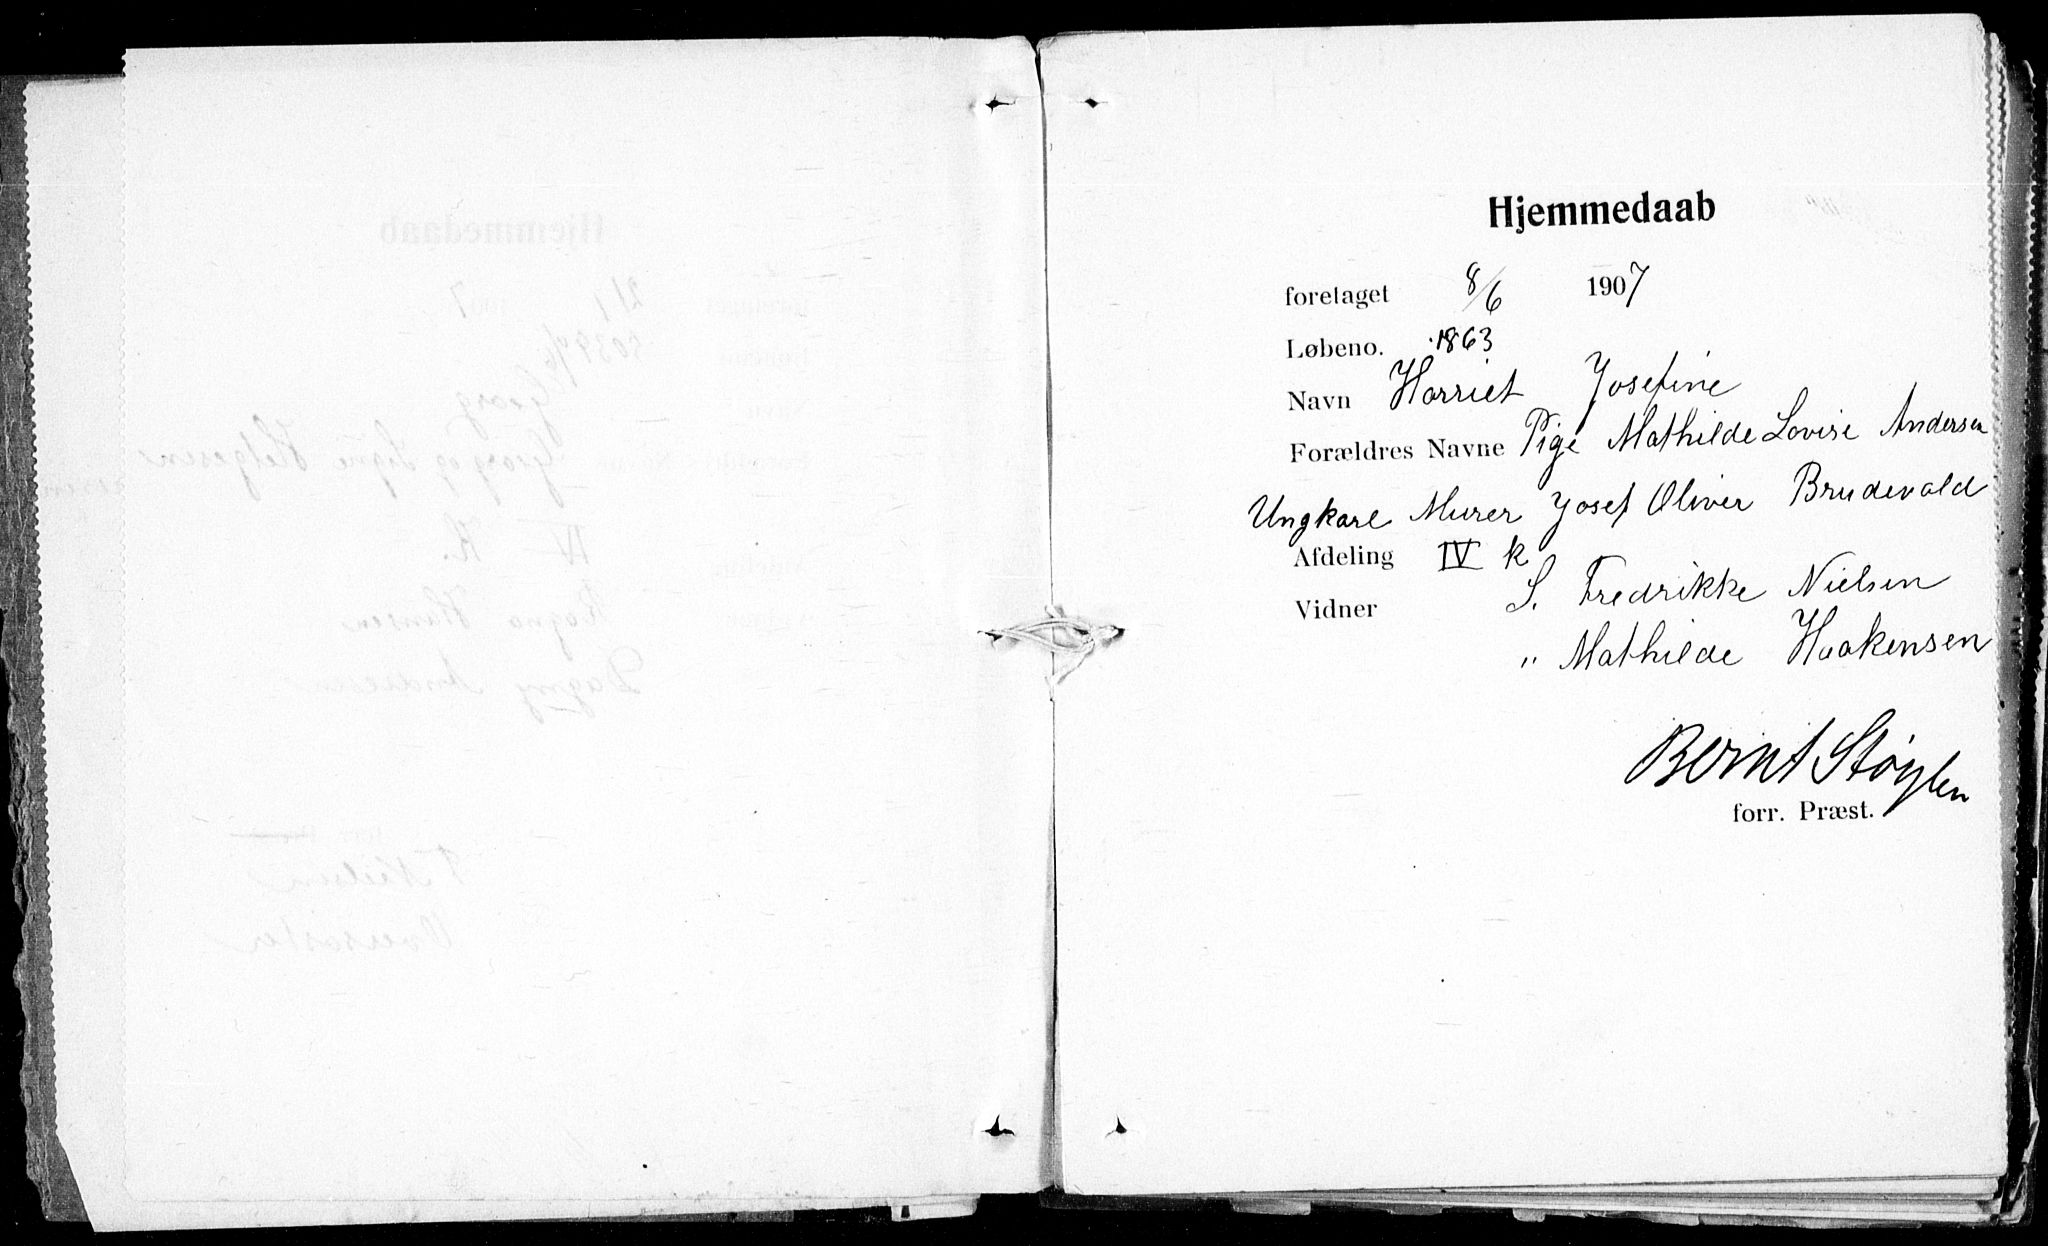 Hjemmedaab
foretaget 8/6 1907
Løbeno. 1863
Navn Harriet Josefine
Forældres Navne Pige Mathilde Lovise Andersen
Ungkarl Murer Josef Oliver Brudevold
Afdeling IV k
Vidner S. Fredrikke Nielsen
" Mathilde Haakensen
Bernt Støylen
forr. Præst.